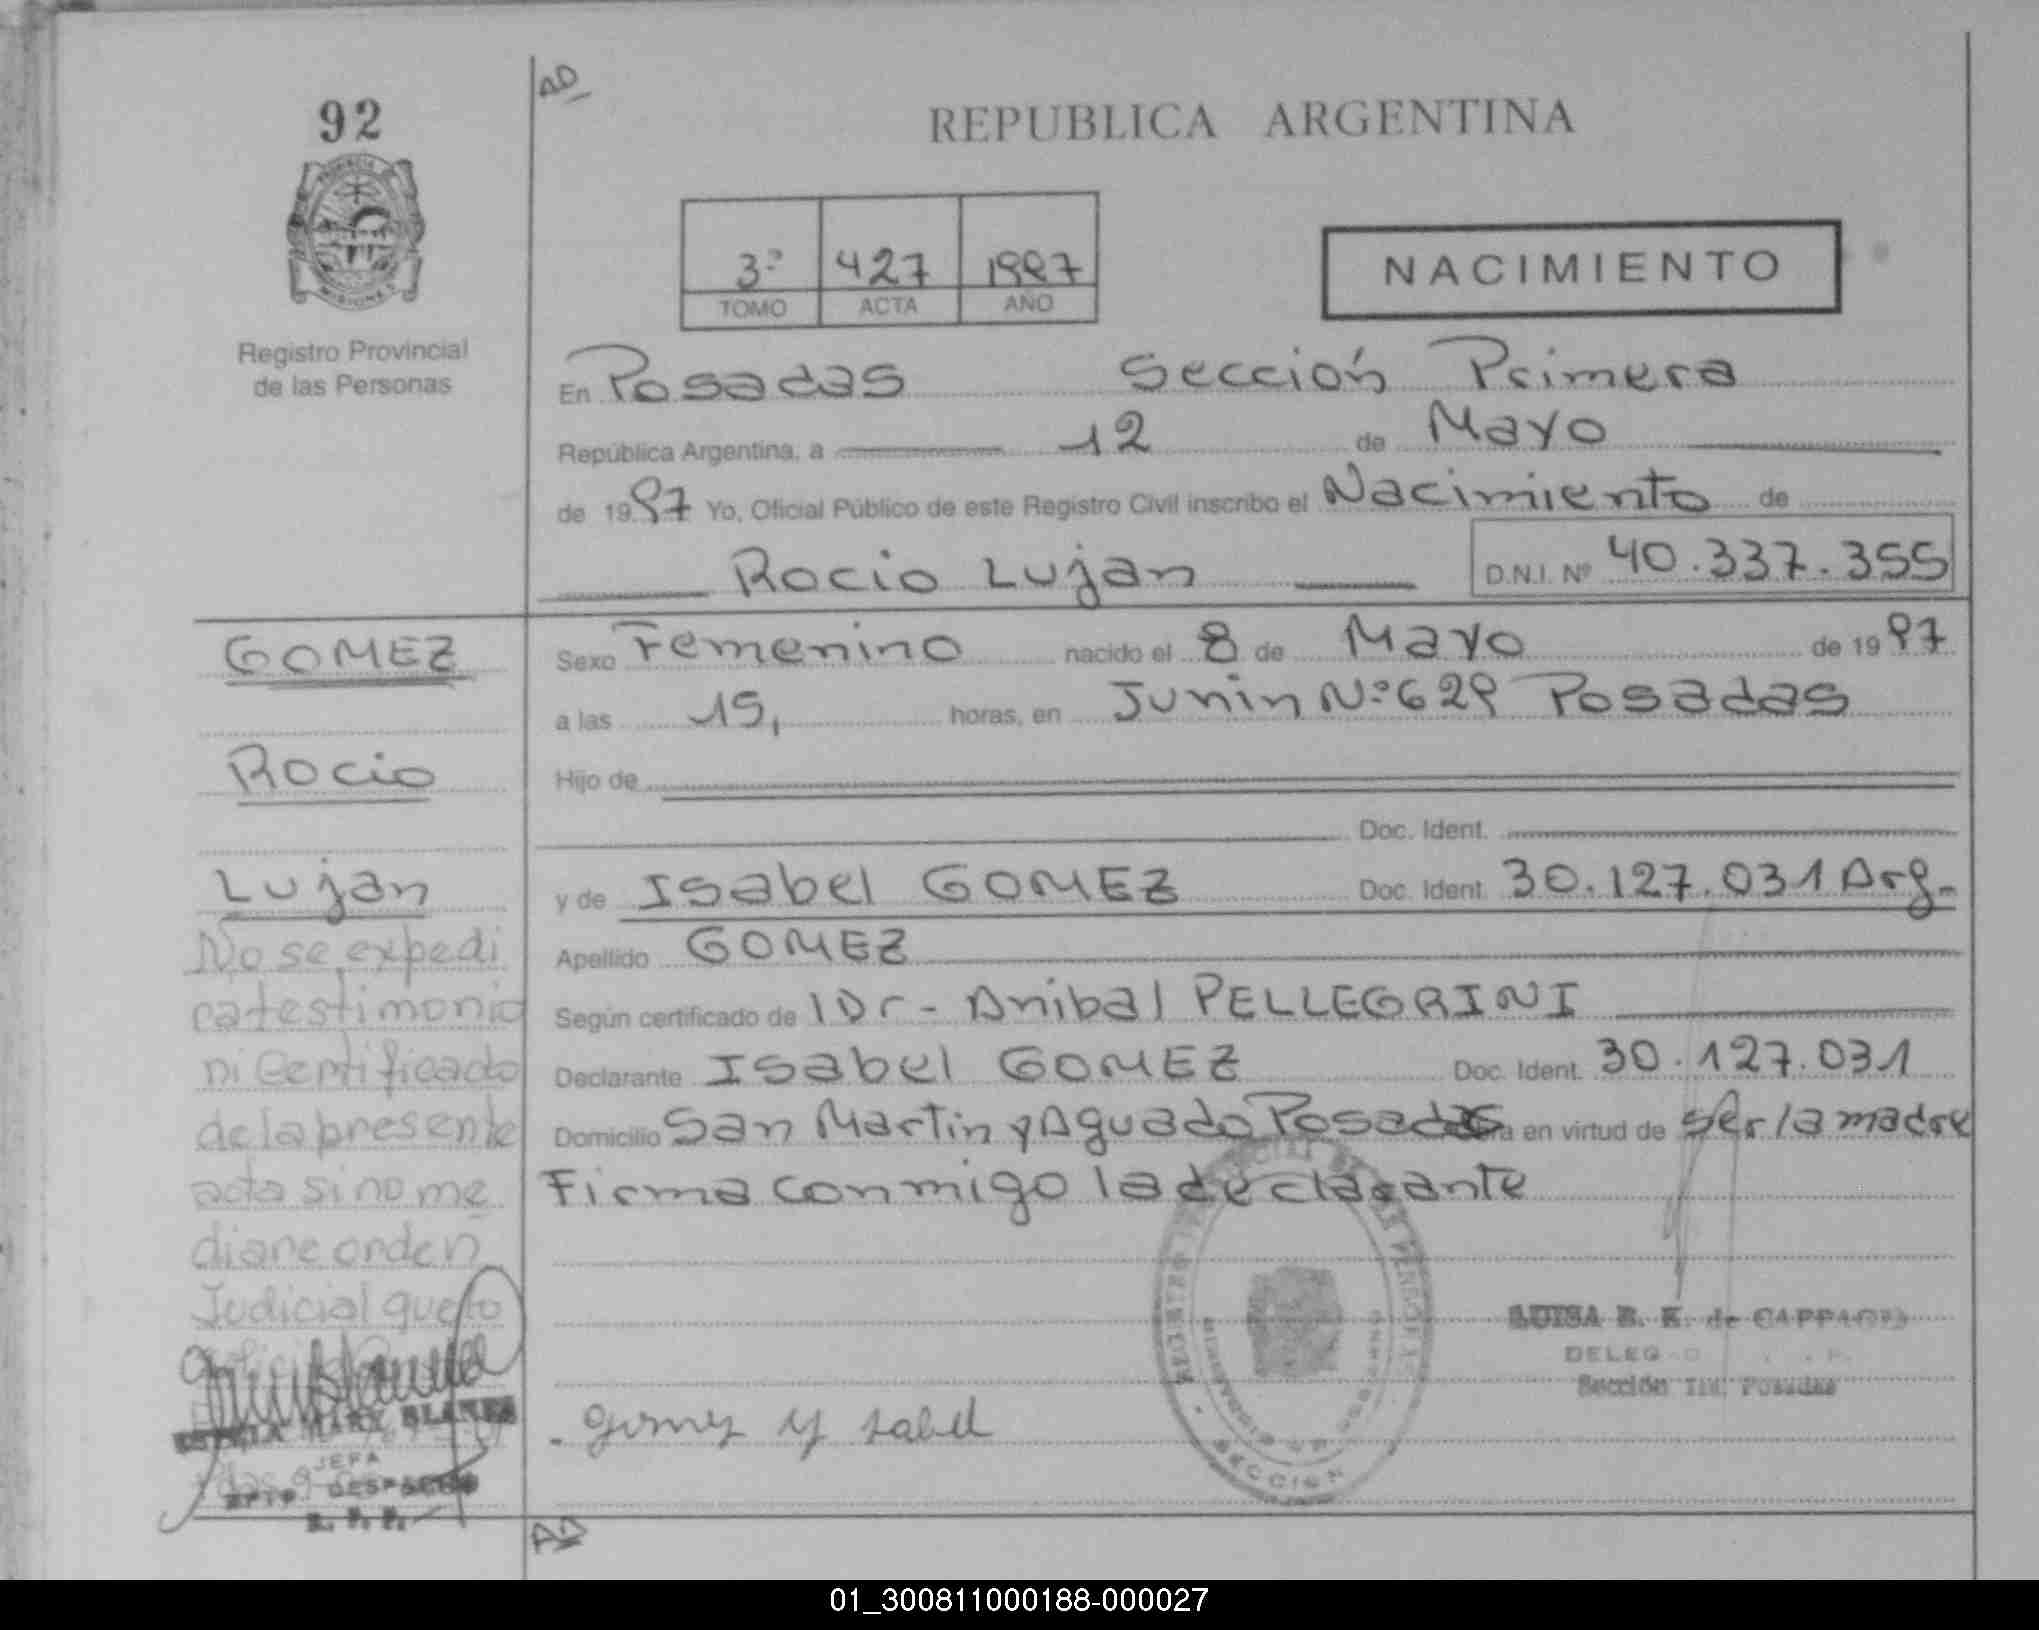 92
AD
REPUBLICA ARGENTINA
3º 427 1997
TOMO ACTA AÑO
NACIMIENTO
Registro Provincial
de las Personas
En Posadas Sección Primera
República Argentina, a 12 de Mayo
de 1997 Yo, Oficial Público de este Registro Civil inscribo el Nacimiento de
Rocio Lujan D.N.I. Nº 40.337.355
GOMEZ
Rocio
Lujan
Sexo Femenino nacido el 8 de Mayo de 1997
a las 15, horas, en Junin Nº 629 Posadas
Hijo de
Doc. Ident.
y de Isabel GOMEZ Doc. Ident. 30.127.031 Arg.
Apellido GOMEZ
Según certificado de Dr. Anibal PELLEGRINI
Declarante Isabel GOMEZ Doc. Ident. 30.127.031
Domicilio San Martin y Aguado Posadas en virtud de ser la madre
Firma conmigo la declarante
No se expedi
ra testimonio
ni Certificado
de la presente
acta si no me
diare orden
Judicial que lo
BLANES
JEFA
DPTO. DESPACHO
R. P. P.
SECCION
LUISA B. K. de
Sección 1ra. Posadas
gomez ysabel
AD
01_300811000188-000027